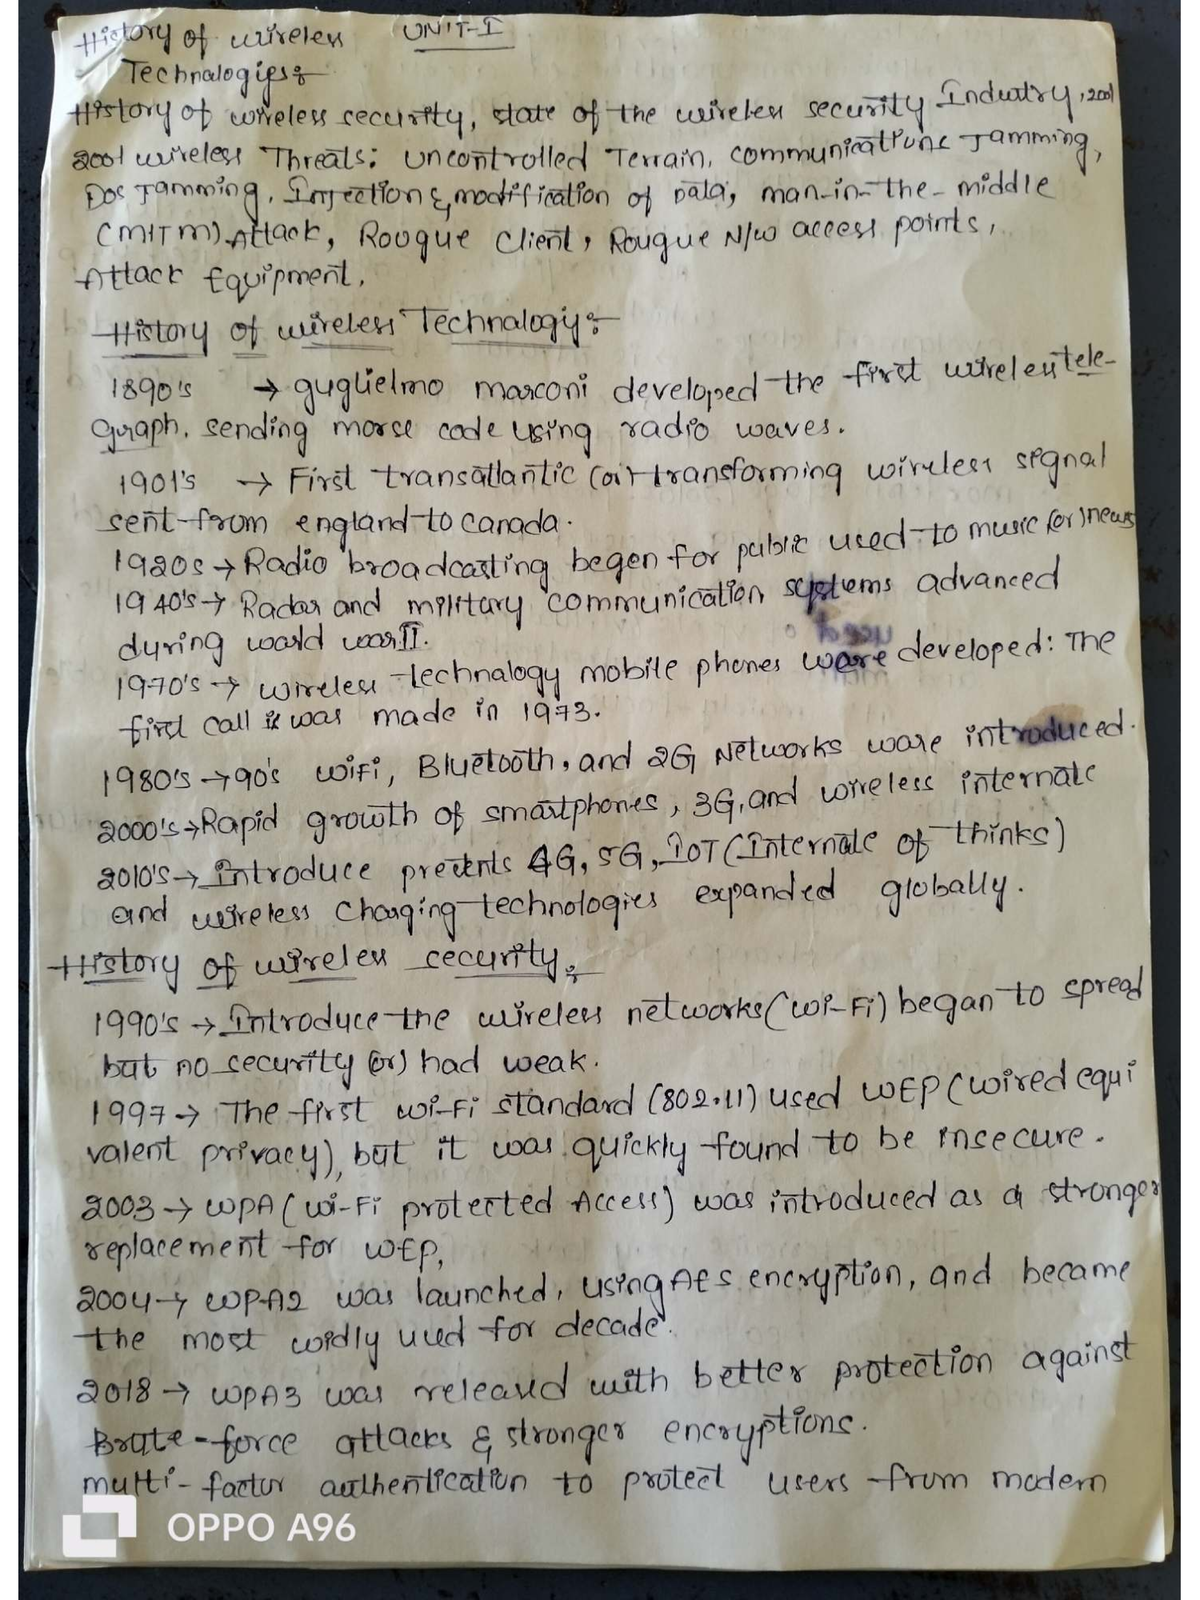 History of wireless UNIT-I
Technalogies:-
History of wireless security, state of the wireless security Industry, 2001
2001 wireless Threats: uncontrolled Terrain, communications Jamming,
Dos Jamming, Injection & modification of Data, man-in-the-middle
(MITM) Attack, Rougue Client, Rougue N/w access points,
Attack Equipment.
History of wireless Technalogy:-
1890's → guglielmo marconi developed the first wireless tele-
graph, sending morse code using radio waves.
1901's → First transatlantic (or) transforming wireless signal
sent from england to canada.
1920s → Radio broadcasting began for public used to music (or) news
1940's → Radar and military communication systems advanced
during world war II.
1970's → wireless technalogy mobile phones ware developed: The
first call was made in 1973.
1980's → 90's wifi, Bluetooth, and 2G Networks ware introduced.
2000's → Rapid growth of smartphones, 3G, and wireless internate
2010's → Introduce precents 4G, 5G, IOT (Internate of thinks)
and wireless charging technologies expanded globally.
History of wireless security:-
1990's → Introduce the wireless networks (wi-Fi) began to spread
but no security (or) had weak.
1997 → The first wi-Fi standard (802.11) used WEP (wired equi
valent privacy), but it was quickly found to be insecure.
2003 → WPA (wi-Fi protected Access) was introduced as a stronger
replacement for WEP,
2004 → WPA2 was launched, using AES encryption, and became
the most widly used for decade.
2018 → WPA3 was released with better protection against
Brute-force attacks & stronger encryptions.
multi-factor authentication to protect users from modern
OPPO A96